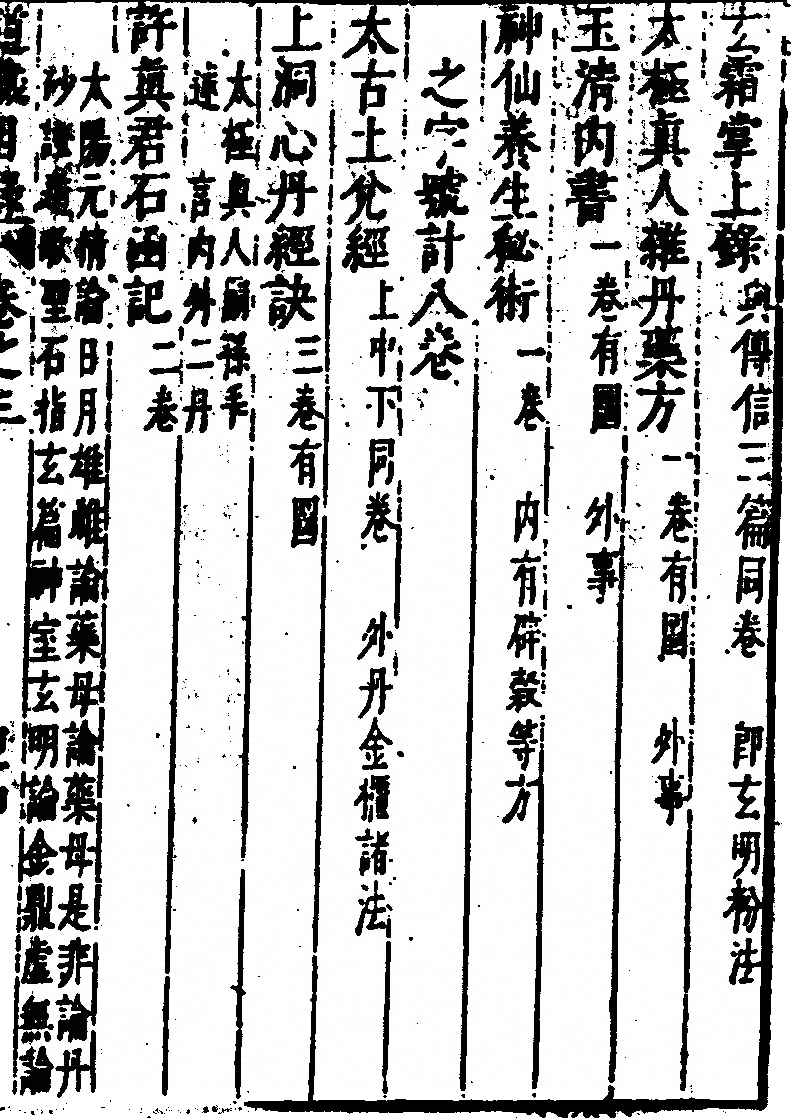 玄霜掌上錄 與傳信三篇同卷 即玄明粉法
太極真人雜丹藥方 一卷有圖 外事
玉清內書 一卷有圖 外事
神仙養生秘術 一卷 內有辟穀等方
之字號計八卷
太古土兌經 上中下同卷 外丹金櫃諸法
上洞心丹經訣 三卷有圖
太極真人嗣孫手
述 言內外二丹
許真君石函記 二卷
太陽元精論日月雄雌論藥母論藥母是非論丹
砂證道歌聖石指玄篇神室玄明論金鼎虛無論
道藏目錄 卷之三